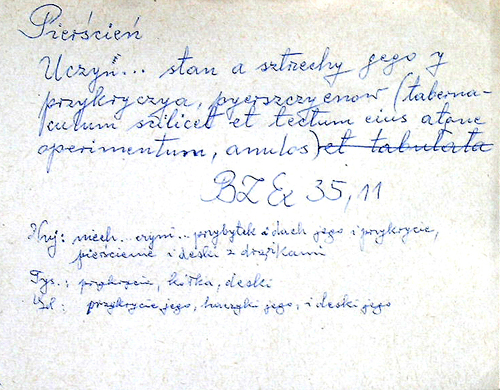 Pierścień
Uczyń... stan a sztrzechy jego y
przykryczya, pyerszczyenow (taberna-
culum scilicet et tectum eius atque
operimentum, anulos) et tabulata
BZ Ex 35,11
Wuj: niech... czyni... przybytek i dach jego i przykrycie,
pierścienie i deski z drążkami
Tys.: przykrycie, kółka, deski
Gd: przykrycie jego, haczyki jego, i deski jego